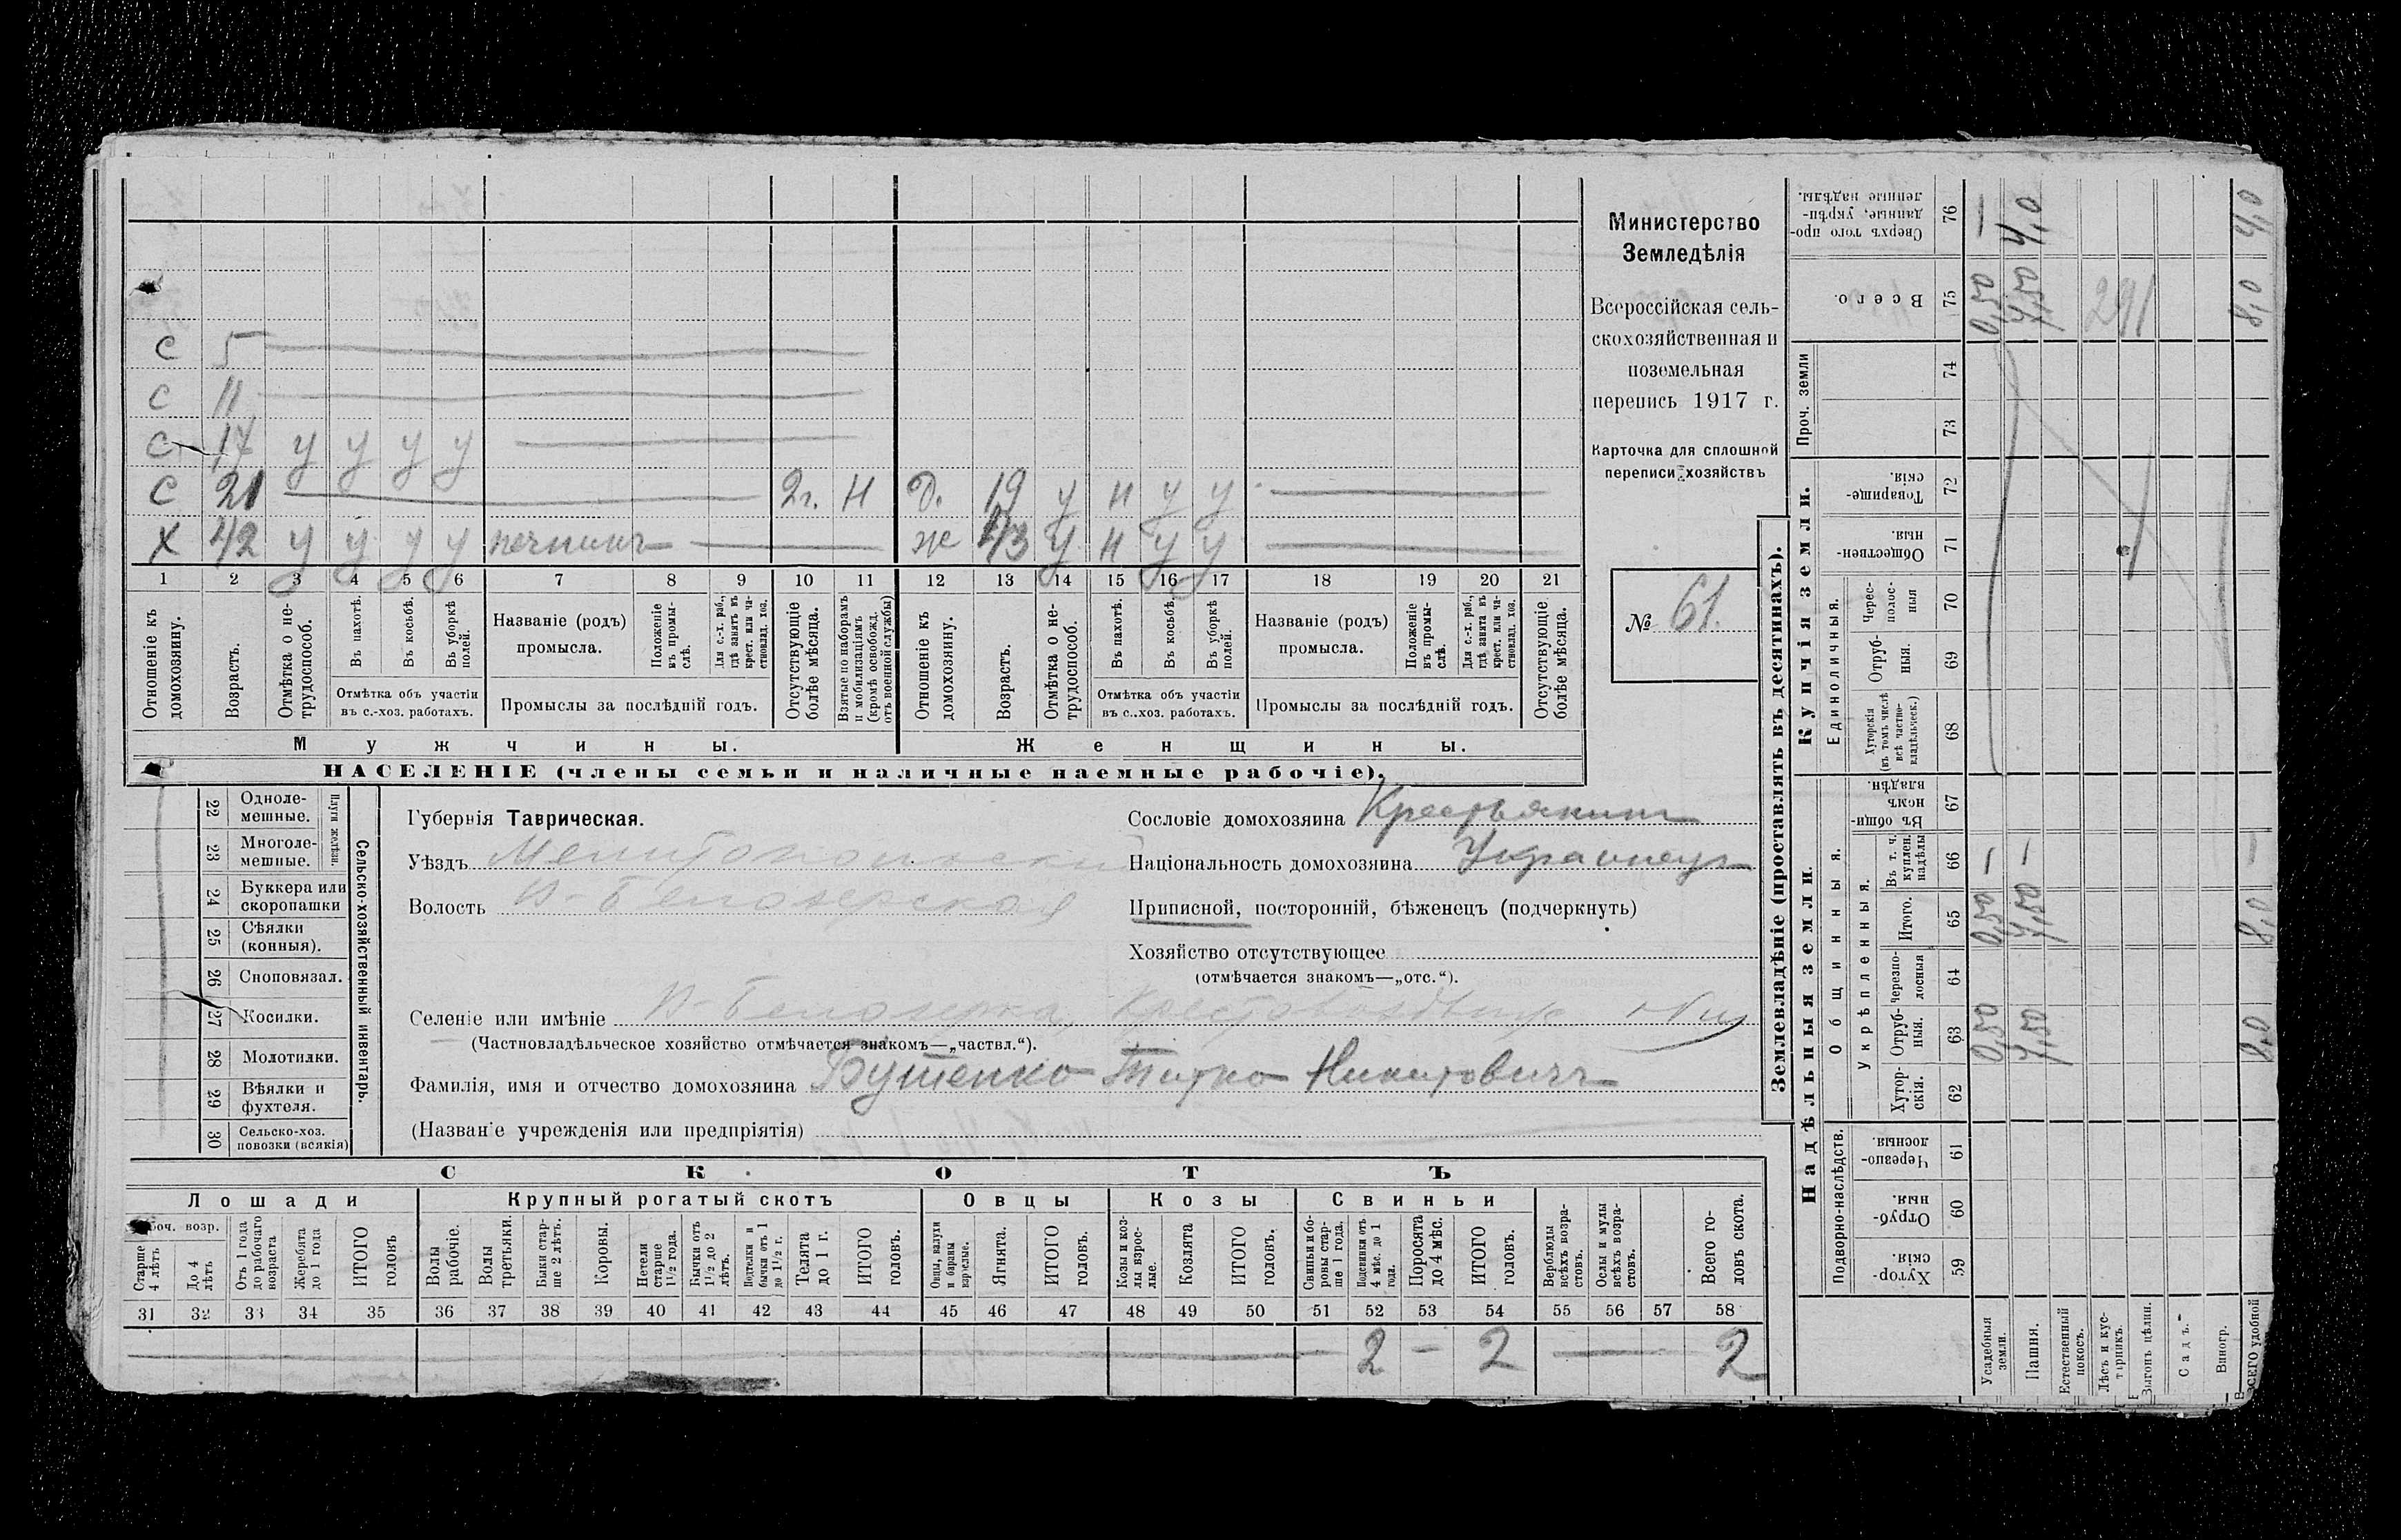 С 5
С 11
С 17 у у у у
С 21 2 г. Н Д. 19 у н у у
Х 42 у у у у печникъ же 43 у н у у
1 2 3 4 5 6 7 8 9 10 11 12 13 14 15 16 17 18 19 20 21
Отношеніе къ домохозяину.
Возрастъ.
Отмѣтка о не-трудоспособ.
Въ пахотѣ.
Въ косьбѣ.
Въ уборкѣ полей.
Отмѣтка объ участіи
въ с.-хоз. работахъ.
Названіе (родъ)
промысла.
Положеніе въ промы-слѣ.
Для с.-х. раб., гдѣ занятъ въ крест. или ча-стновлад. хоз.
Промыслы за послѣдній годъ.
Отсутствующіе болѣе мѣсяца.
Взятые по наборамъ и мобилизаціямъ (кромѣ освобожд. отъ военной службы)
Отношеніе къ домохозяину.
Возрастъ.
Отмѣтка о не-трудоспособ.
Въ пахотѣ.
Въ косьбѣ.
Въ уборкѣ полей.
Отмѣтка объ участіи
въ с..хоз. работахъ.
Названіе (родъ)
промысла.
Положеніе въ промы-слѣ.
Для с.-х. раб., гдѣ занята въ крест. или ча-стновлад. хоз.
Промыслы за послѣдній годъ.
Отсутствующіе болѣе мѣсяца.
Мужчины. Женщины.
НАСЕЛЕНІЕ (члены семьи и наличные наемные рабочіе).
Министерство
Земледѣлія
Всероссійская сель-
скохозяйственная и
поземельная
перепись 1917 г.
Карточка для сплошной
переписи хозяйствъ
№ 61.
22 Одноле-мешные.
23 Многоле-мешные.
Плуги желѣзн.
24 Буккера или скоропашки
25 Сѣялки (конныя).
26 Сноповязал.
27 Косилки.
28 Молотилки.
29 Вѣялки и фухтеля.
30 Сельско-хоз. повозки (всякія)
Сельско-хозяйственный инвентарь.
Губернія Таврическая.
Уѣздъ Мелитопольскій
Волость В-Белозерская
Селеніе или имѣніе В-Белозерка, Крестовоздвиж
(Частновладѣльческое хозяйство отмѣчается знакомъ—„частвл.“).
Фамилія, имя и отчество домохозяина Бутенко Титко Никитовичъ
(Названіе учрежденія или предпріятія)
Сословіе домохозяина Крестьянинъ
Національность домохозяина Украинецъ
Приписной, посторонній, бѣженецъ (подчеркнуть)
Хозяйство отсутствующее
(отмѣчается знакомъ—„отс.“).
СКОТЪ
Лошади Крупный рогатый скотъ Овцы Козы Свиньи
Рабоч. возр.
Старше 4 лѣтъ
До 4 лѣтъ
Отъ 1 года до рабочаго возраста
Жеребята до 1 года
ИТОГО головъ
Волы рабочіе.
Волы третьяки.
Быки стар-ше 2 лѣтъ.
Коровы.
Нетели старше 1½ года.
Бычки отъ 1½ до 2 лѣтъ.
Подтелки и бычки отъ 1 до 1½ г.
Телята до 1 г.
ИТОГО головъ.
Овцы, валухи и бараны взрослые.
Ягнята.
ИТОГО головъ.
Козы и коз-лы взрос-лые.
Козлята
ИТОГО головъ.
Свиньи и бо-ровы стар-ше 1 года.
Подсвинки отъ 4 мѣс. до 1 года.
Поросята до 4 мѣс.
ИТОГО головъ.
Верблюды всѣхъ возра-стовъ.
Ослы и мулы всѣхъ возра-стовъ.
Всего го-ловъ скота.
31 32 33 34 35 36 37 38 39 40 41 42 43 44 45 46 47 48 49 50 51 52 53 54 55 56 57 58
2 — 2 2
Землевладѣніе (проставлять въ десятинахъ).
Надѣльныя земли. Купчія земли.
Подворно-наслѣдств.
Общинныя.
Укрѣпленныя.
Единоличныя.
Проч. земли
Сверхъ того про-данные, укрѣп-ленные надѣлы. 76 — 4,0 4,0
Всего. 75 0,50 7,50 291 8,0
74
73
Товарище-скія. 72
Обществен-ныя. 71
Черес-полос-ныя 70
Отруб-ныя. 69
Хуторскія (въ томъ числѣ всѣ частно-владѣльческ.) 68
Въ общи-номъ владѣн. 67
Въ т. ч. куплен. надѣлы 66 — — —
Итого. 65 0,50 7,50 8,0
Черезпо-лосныя 64
Отруб-ныя. 63 0,50 7,50 8,0
Хутор-скія. 62
Черезпо-лосныя. 61
Отруб-ныя. 60
Хутор-скія. 59
Усадебныя земли.
Пашня.
Естественный покосъ.
Лѣсъ и кус-тарникъ.
Выгонъ цѣлин.
Садъ.
Виногр.
Всего удобной